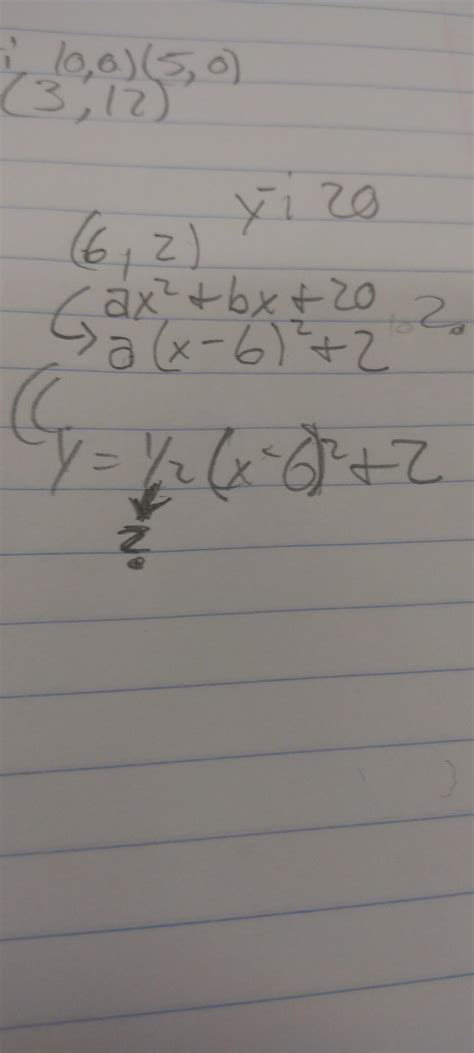 i (0,0)(5,0)
(3,12)
yi 20
(6,2)
ax²+bx+20
a(x-6)²+2
y=1/2(x-6)²+2
?